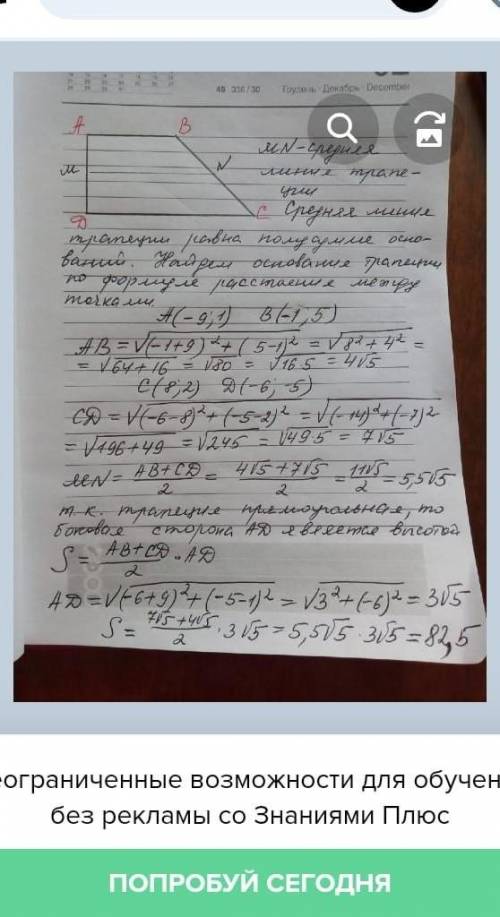 49 336/30 Грудень · Декабрь · December
A B
MN-средняя
M N
линия трапе-
ции
D C Средняя линия
трапеции равна полусумме осно-
ваний. Найдем основание трапеции
по формуле расстояния между
точками
A(-9;1) B(-1;5)
AB = √(-1+9)²+(5-1)² = √8²+4² =
= √64+16 = √80 = √16·5 = 4√5
C(8;2) D(-6;-5)
CD = √(-6-8)²+(-5-2)² = √(-14)²+(-7)²
= √196+49 = √245 = √49·5 = 7√5
MN = AB+CD/2 = 4√5+7√5/2 = 11√5/2 = 5,5√5
т.к. трапеция прямоугольная, то
боковая сторона AD является высотой
S = AB+CD/2 · AD
AD = √(-6+9)²+(-5-1)² = √3²+(-6)² = 3√5
S = 7√5+4√5/2 · 3√5 = 5,5√5 · 3√5 = 82,5
еограниченные возможности для обучен
без рекламы со Знаниями Плюс
ПОПРОБУЙ СЕГОДНЯ